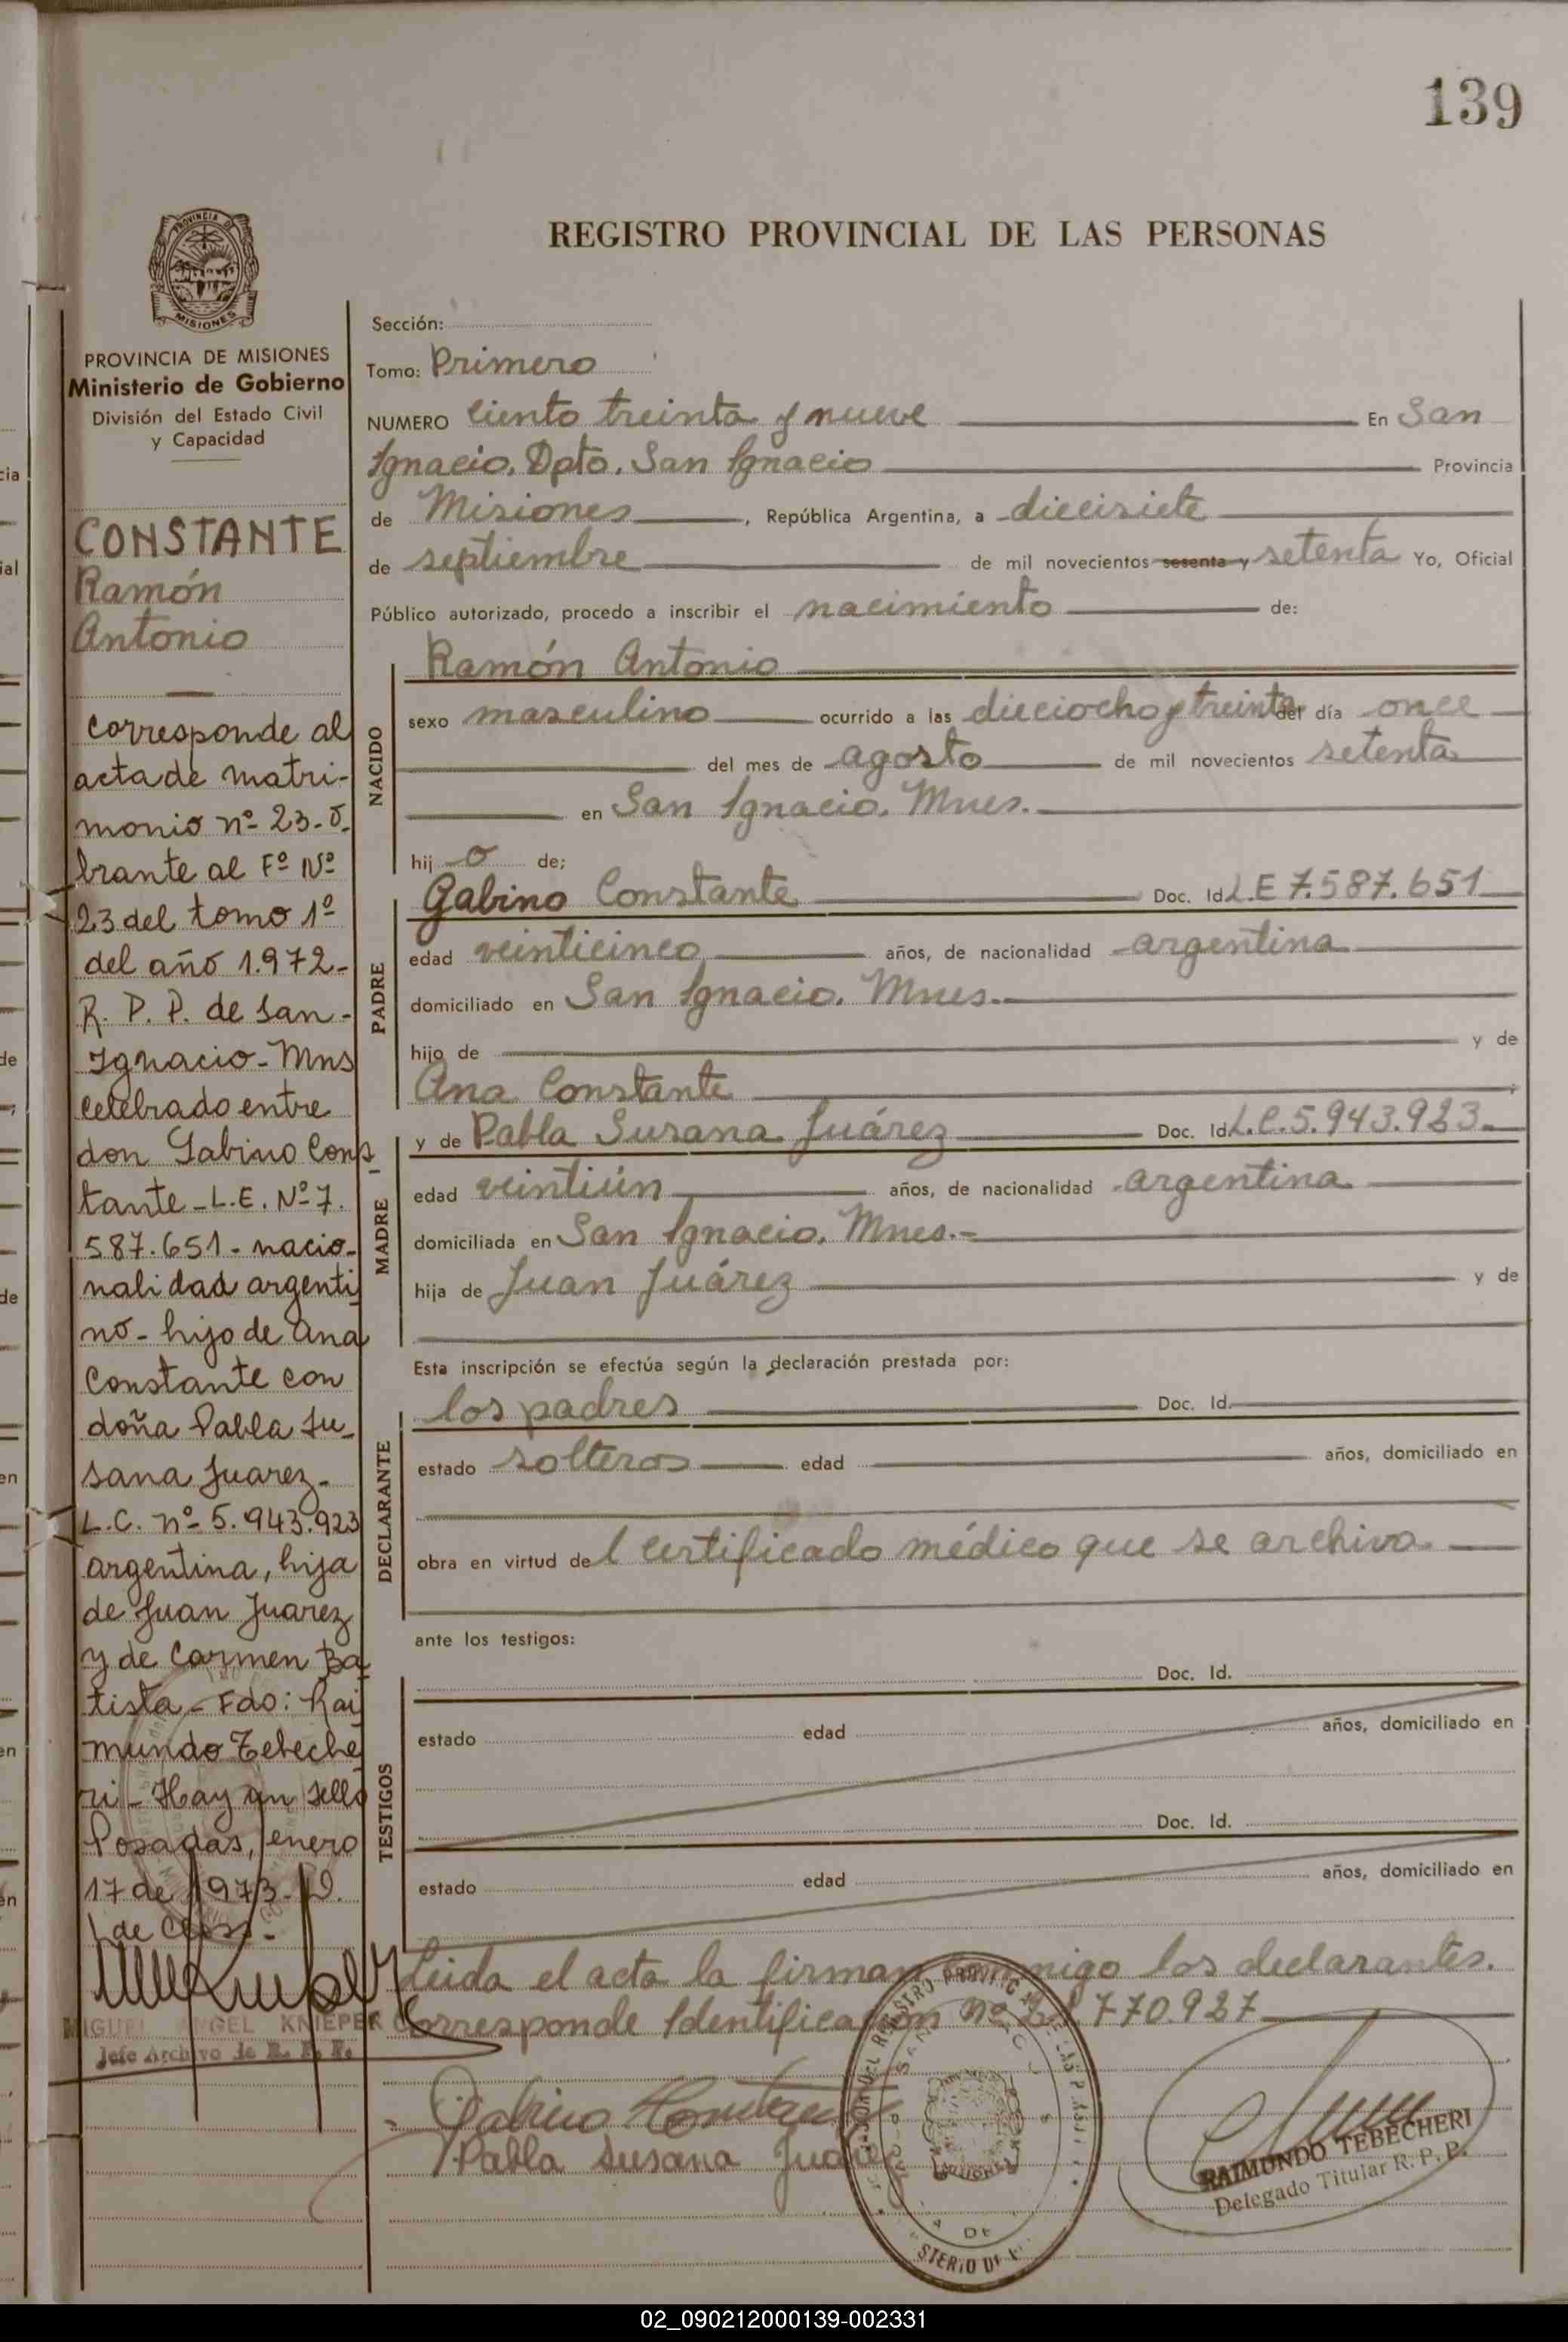 139
REGISTRO PROVINCIAL DE LAS PERSONAS
PROVINCIA
MISIONES
PROVINCIA DE MISIONES
Ministerio de Gobierno
División del Estado Civil
y Capacidad
CONSTANTE
Ramón
Antonio
Corresponde al
acta de matri-
monio nº 23-o-
brante al Fº Nº
23 del tomo 1º
del año 1.972-
R. P. P. de San-
Ignacio-Mns
celebrado entre
don Gabino Cons
tante-L.E. Nº 7.
587.651-nacio-
nalidad argenti
no-hijo de Ana
Constante con
doña Pabla Su-
sana Juarez-
L.C. nº 5.943.923
argentina, hija
de Juan Juarez
y de Carmen Ba
tista-Fdo: Rai
mundo Tebeche
ri-Hay un sello
Posadas, enero
17 de 1973-
MIGUEL ANGEL KNIEPER
Jefe Archivo de R. P. P.
Sección:
Tomo: Primero
NUMERO ciento treinta y nueve En San
Ignacio. Dpto. San Ignacio Provincia
de Misiones, República Argentina, a diecisiete
de septiembre de mil novecientos sesenta y setenta Yo, Oficial
Público autorizado, procedo a inscribir el nacimiento de:
NACIDO
Ramón Antonio
sexo masculino ocurrido a las dieciocho y treinta del día once
del mes de agosto de mil novecientos setenta
en San Ignacio. Mnes.
hij o de;
PADRE
Gabino Constante Doc. Id L.E 7.587.651
edad veinticinco años, de nacionalidad argentina
domiciliado en San Ignacio. Mnes.
hijo de y de
Ana Constante
MADRE
y de Pabla Susana Juárez Doc. Id L.C.5.943.923.
edad veintiún años, de nacionalidad argentina
domiciliada en San Ignacio. Mnes.-
hija de Juan Juárez y de
Esta inscripción se efectúa según la declaración prestada por:
DECLARANTE
los padres Doc. Id.
estado solteros edad años, domiciliado en
obra en virtud del certificado médico que se archiva.
ante los testigos:
TESTIGOS
Doc. Id.
estado edad años, domiciliado en
Doc. Id.
estado edad años, domiciliado en
Leida el acta la firman conmigo los declarantes.
Corresponde Identificación Nº 770.927
Gabino Constante
Pabla Susana Juárez
RAIMUNDO TEBECHERI
Delegado Titular R. P. P.
02_090212000139-002331